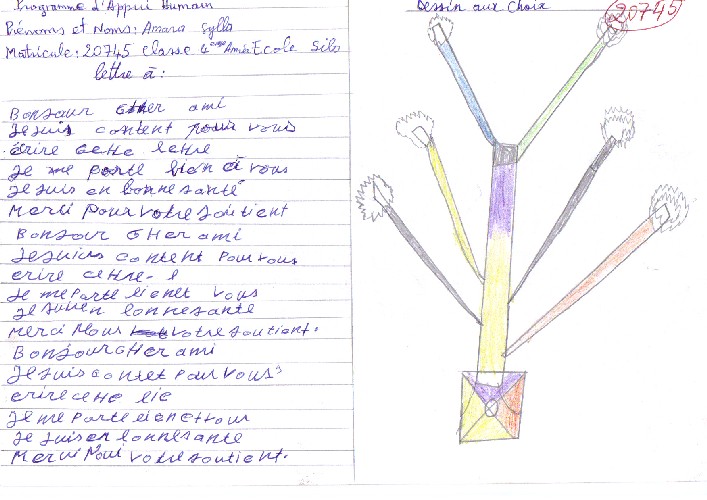 Programme d'Appui Humain
Prénoms et Noms: Amara Sylla
Matricule: 20745 classe 4ème Année Ecole Silo
lettre à:
Bonsour Cher ami
Je suis content pour vous
écrire cette lettre
Je me porte bien à vous
Je suis en bonne santé
Merci pour votre soutient
Bonsour Cher ami
Je suius content pour vous
erire cettre- l
Je me Parte lienet vous
Je suien lonnesante
Merci Mour votre soutient.
Bonjour Cher ami
Je suis contet Pour vous
erire cette lie
Je me Parte lienet vour
Je suisen lonnesante
Merci Pour votre soutient.
Dessin aux Choix
20745